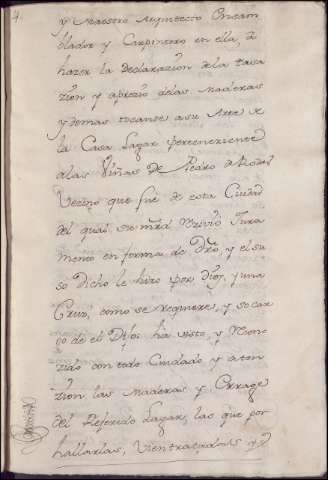 y Maestro Arquitecto Ensam
blador y Carpintero en ella, à
hazer la Declarazion de la tasa
zion y aprezio delas Maderas
y demas tocante a su Arte de
la Casa Lagar perteneziente
alas Viñas de Pedro de Rodas
Vezino que fue de esta Ciudad
del qual su mrd Rzivio Jura
mento en forma de Dro, y el su
so dicho le hizo por Dios, y una
Cruz, como se requiere, y so car
go de el Dijo: ha visto, y Reco
nozido con todo Cuidado y aten
zion las Maderas y
del Referido Lagar, las que por
hallarlas, y